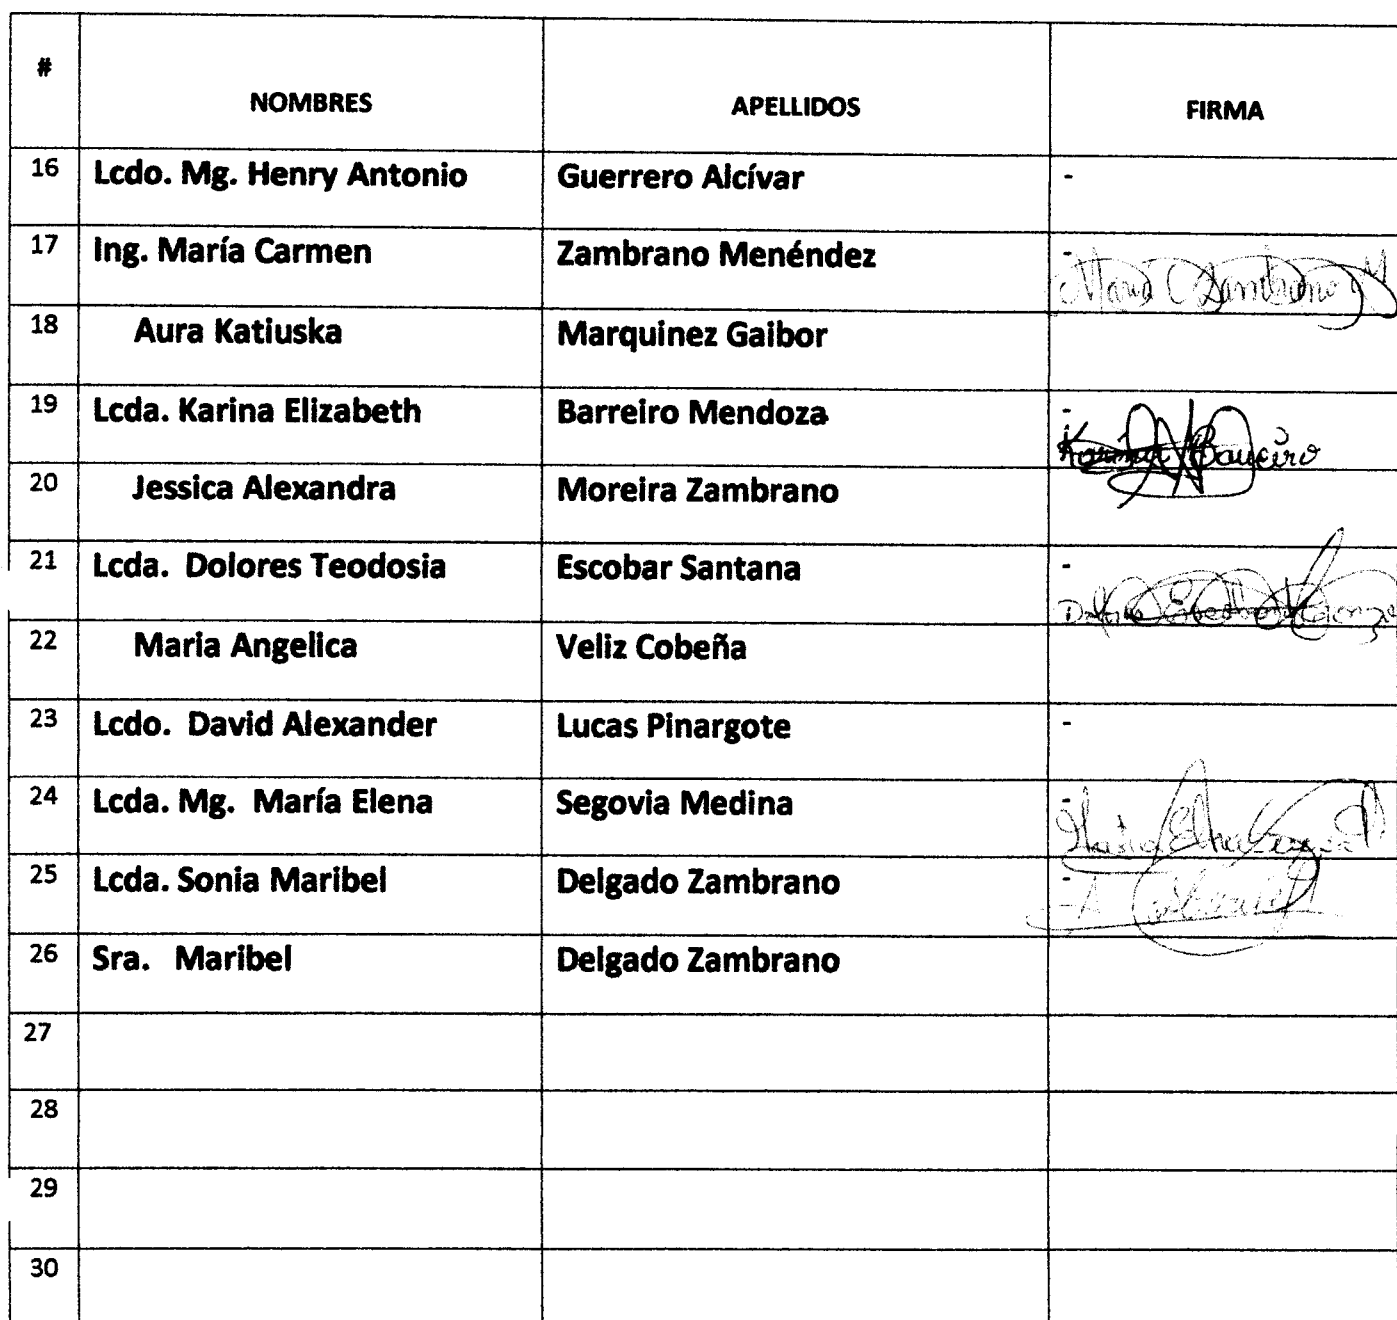 # NOMBRES APELLIDOS FIRMA
16 Lcdo. Mg. Henry Antonio Guerrero Alcívar -
17 Ing. María Carmen Zambrano Menéndez - Maria C Zambrano M
18 Aura Katiuska Marquinez Gaibor
19 Lcda. Karina Elizabeth Barreiro Mendoza - Karina Barreiro
20 Jessica Alexandra Moreira Zambrano
21 Lcda. Dolores Teodosia Escobar Santana -
22 Maria Angelica Veliz Cobeña
23 Lcdo. David Alexander Lucas Pinargote -
24 Lcda. Mg. María Elena Segovia Medina - Maria Elena Segovia
25 Lcda. Sonia Maribel Delgado Zambrano -
26 Sra. Maribel Delgado Zambrano
27
28
29
30